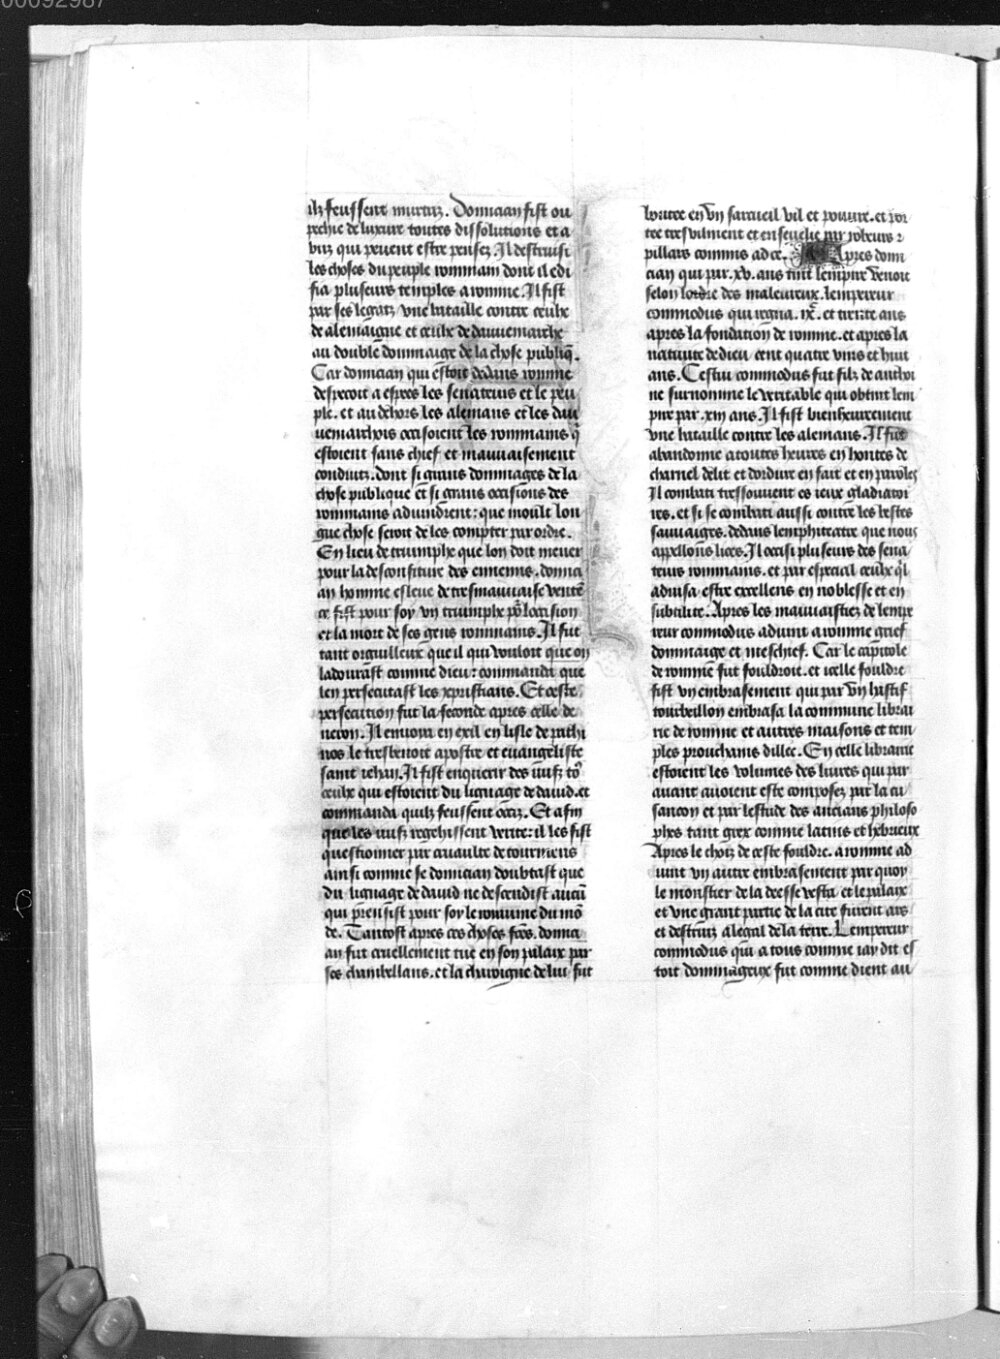 00092987
ilz feussent murtriz. Domician fist ou
pechie de luxure toutes dissolutions et a
buz qui peuent estre pensez. Il destruisi
les choses du peuple rommain dont il edi
fia pluseurs temples a romme. Il fist
par ses legatz vne bataille contre ceulx
de alemaigne et ceulx de dannemarche
au double dommaige de la chose publiq̄.
Car domician qui estoit dedans romme
despecoit a espees les senateurs et le peu
ple. et au dehors les alemans et les dan
nemarchois occisoient les rommains q̄
estoient sans chief et mauuaisement
conduitz. dont si grans dommages de la
chose publique et si grans occisions des
rommains aduindrent: que moult lon
gue chose seroit de les compter par ordre.
En lieu de triumphe que lon doit mener
pour la desconfiture des ennemis. domici
an homme esleue de tresmauuaise vente
ce fist pour soy vn triumphe po᷑ loccision
et la mort de ses gens rommains. Il fut
tant orguilleux que il qui vouloit que on
ladourast comme dieu: commanda que
len persecutast les xp̄ristians. Et ceste
persecution fut la seconde apres celle de
neron. Il enuoia en exil en lisle de pathi
nos le tresbenoit apostre et euangeliste
saint iehan. Il fist enquerir des iuifz to᷑
ceulx qui estoient du lignage de dauid. et
commanda quilz feussent occiz. Et afin
que les iuifz regehissent verite: il les fist
questionner par cruaulte de tourmens
ainsi comme se domician doubtast que
du lignage de dauid ne descendist aucū
qui preinsist pour soy le royaume du mō
de. Tantost apres ces choses faı̄es. domici
an fut cruellement tue en son palaix par
ses chambellans. et la charoigne de lui fut
boutee en vn sarcueil vil et poure. et por
tee tresvilment et enseuelie par robeurs ⁊
pillars commis ad ce. Apres domi
cian qui par .xv. ans tint lempire venoit
selon lordre des maleureux. lempereur
commodus qui regna. ix.ᶜ et trente ans
apres la fondation de romme. et apres la
natiuite de dieu cent quatre vins et huit
ans. Cestui commodus fut filz de anthoi
ne surnomme le veritable qui obtint lem
pire par .xiii ans. Il fist bienheureement
vne bataille contre les alemans. Il fut
abandonne a toutes heures en hontes de
charnel delit et dordure en fait et en paroles
Il combati tressouuent es ieux gladiatoi
res. et si se combati aussi contre les bestes
sauuaiges. dedans lemphiteatre que nous
appellons lices. Il occist pluseurs des sena
teurs rommains. et par especial ceulx q̄l
aduisa estre excellens en noblesse et en
subtilite. Apres les mauuaistiez de lempe
reur commodus aduint a romme grief
dommaige et meschief. Car le capitole
de romme fut fouldroie. et icelle fouldre
fist vn embrasement qui par vn hastif
tourbeillon embrasa la commune librai
rie de romme et autres maisons et tem
ples prouchains dillec. En celle librairie
estoient les volumes des liures qui par
auant auoient este composez par la cu
sancon et par lestude des ancians philoso
phes tant grex comme latins et hebrieux
Apres le choiz de ceste fouldre. a romme ad
uint vn autre embrasement par quoy
le monstier de la deesse vesta et le palaix
et vne grant partie de la cite furent ars
et destruiz a legal de la terre. Lempereur
commodus qui a tous comme iay dit es
toit dommageux fut comme dient au